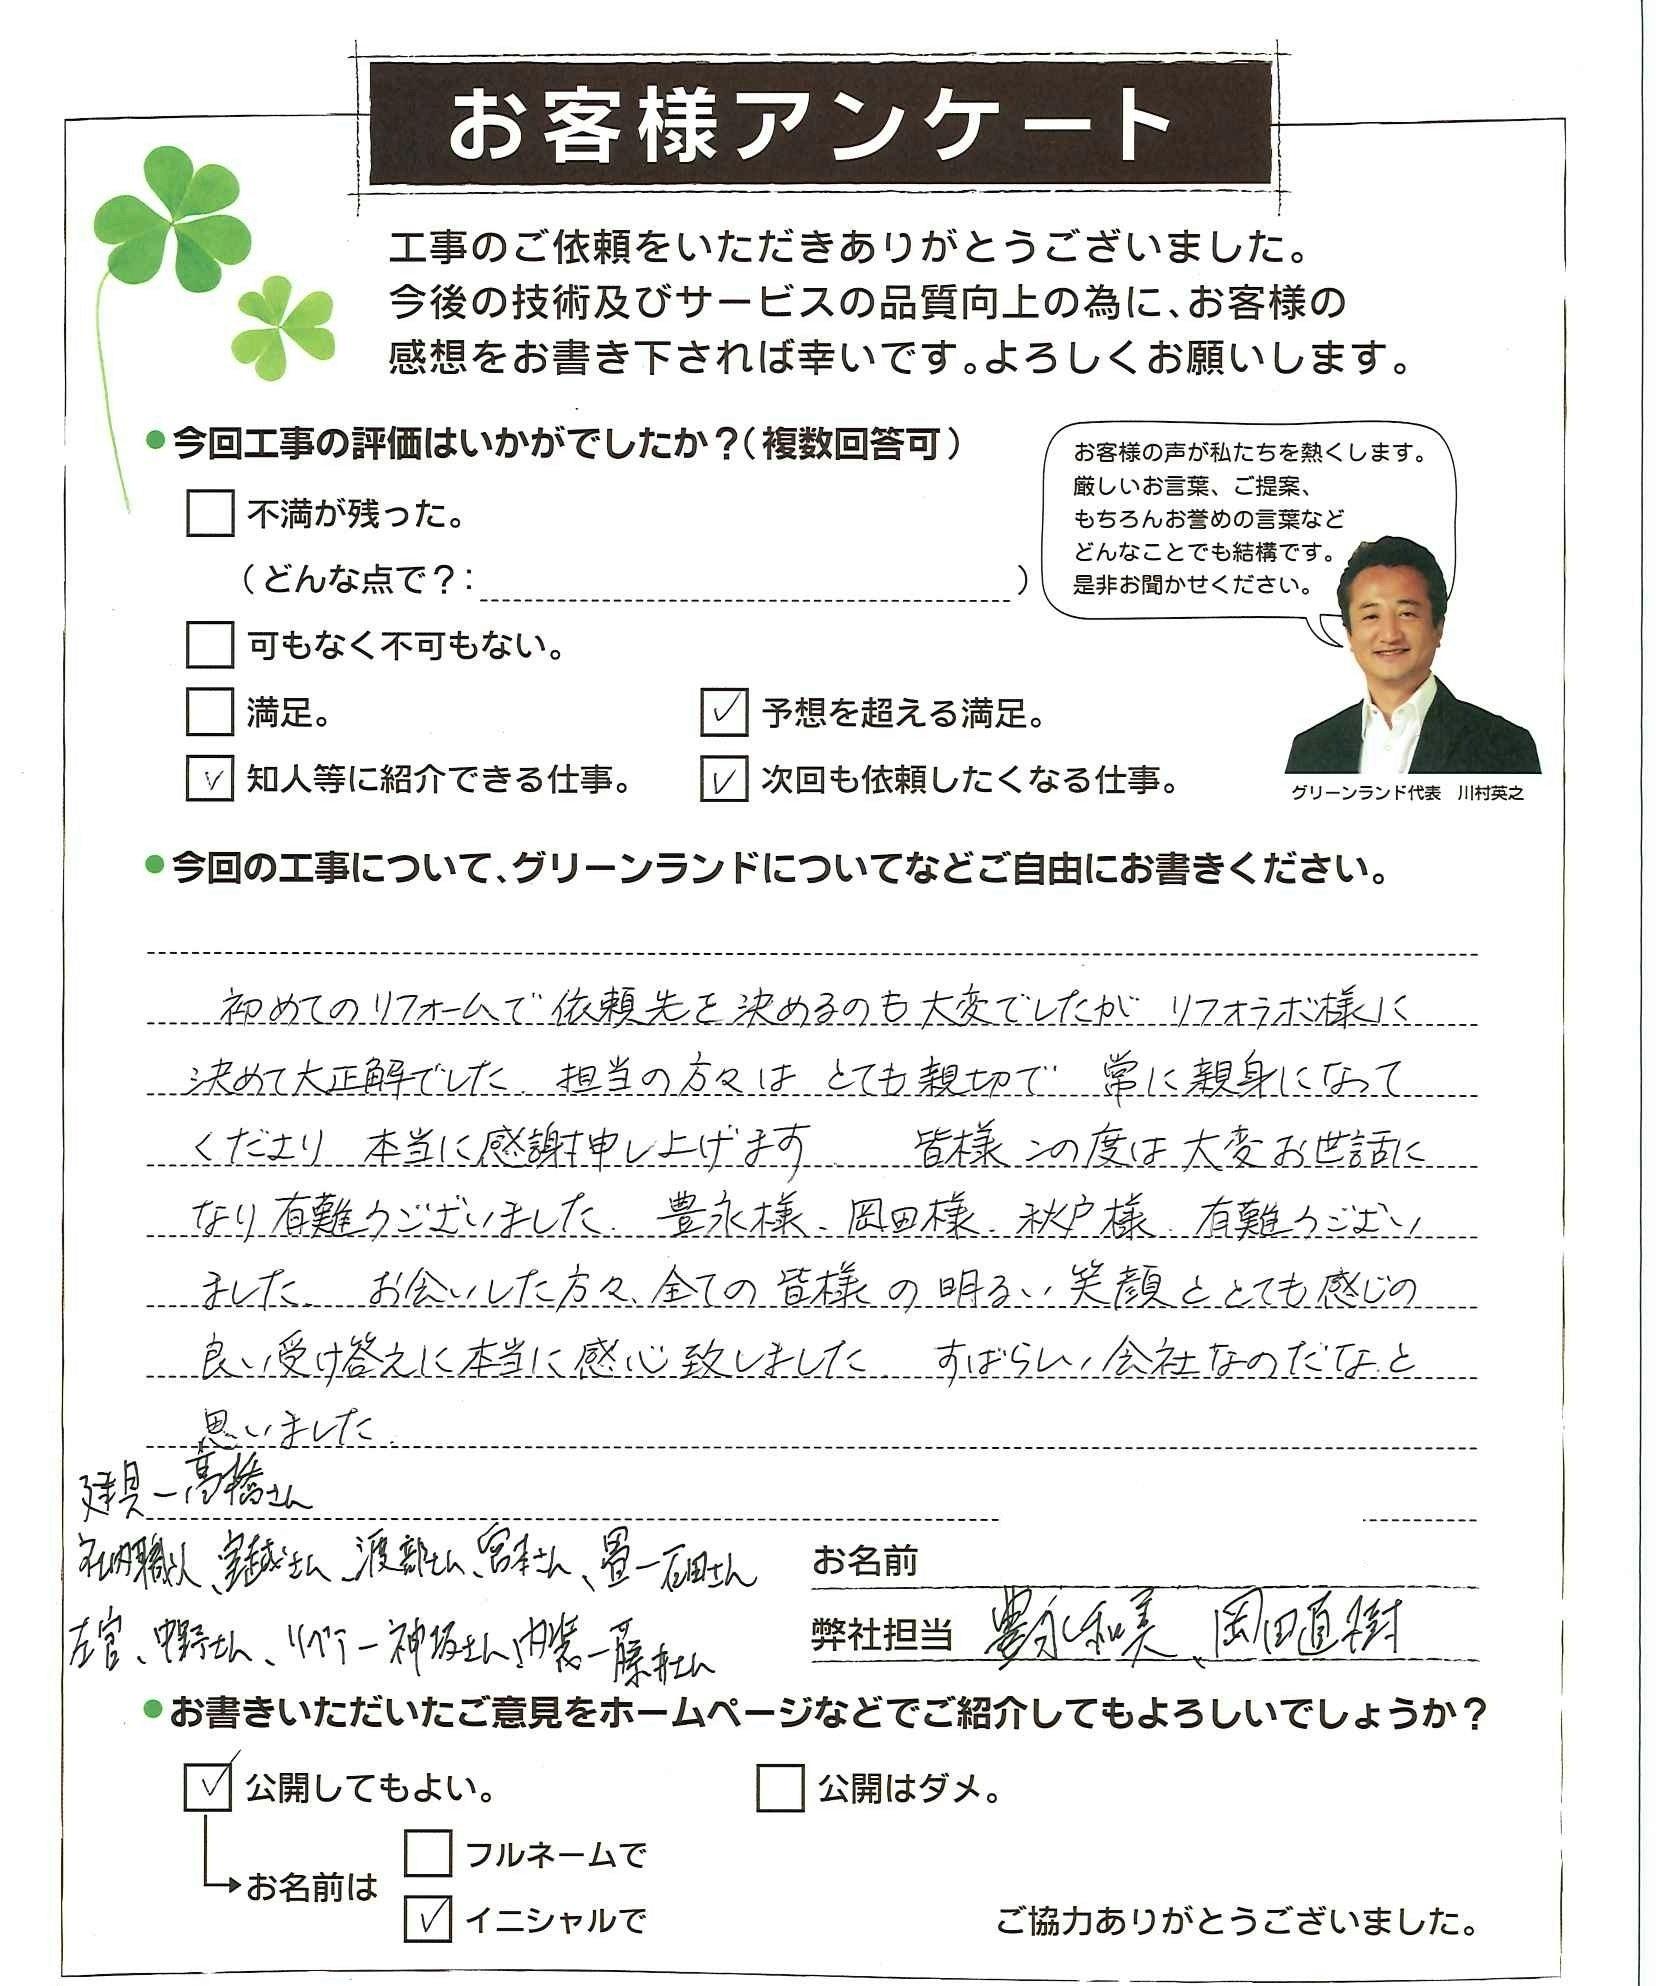 お客様アンケート
工事のご依頼をいただきありがとうございました。
今後の技術及びサービスの品質向上の為に、お客様の
感想をお書き下されば幸いです。よろしくお願いします。
●今回工事の評価はいかがでしたか？（複数回答可）
お客様の声が私たちを熱くします。
厳しいお言葉、ご提案、
もちろんお誉めの言葉など
どんなことでも結構です。
是非お聞かせください。
不満が残った。
（どんな点で？：　）
可もなく不可もない。
満足。
✓ 予想を超える満足。
✓ 知人等に紹介できる仕事。
✓ 次回も依頼したくなる仕事。
グリーンランド代表　川村英之
●今回の工事について、グリーンランドについてなどご自由にお書きください。
初めてのリフォームで依頼先を決めるのも大変でしたが リフォラボ様に
決めて大正解でした。担当の方々は とても親切で 常に親身になって
くださり 本当に感謝申し上げます。 皆様 この度は大変お世話に
なり有難うございました。豊永様、岡田様、秋戸様、有難うござい
ました。 お会いした方々、全ての皆様の明るい笑顔ととても感じの
良い受け答えに本当に感心致しました。 すばらしい会社なのだな、と
思いました。
建具ー髙橋さん
社内職人、宝越さん、渡部さん、宮本さん、畳ー石田さん
左官、中野さん、リペアー神坂さん、内装ー藤井さん
お名前
弊社担当 豊永和美、岡田直樹
●お書きいただいたご意見をホームページなどでご紹介してもよろしいでしょうか？
✓ 公開してもよい。
公開はダメ。
お名前は
フルネームで
✓ イニシャルで
ご協力ありがとうございました。